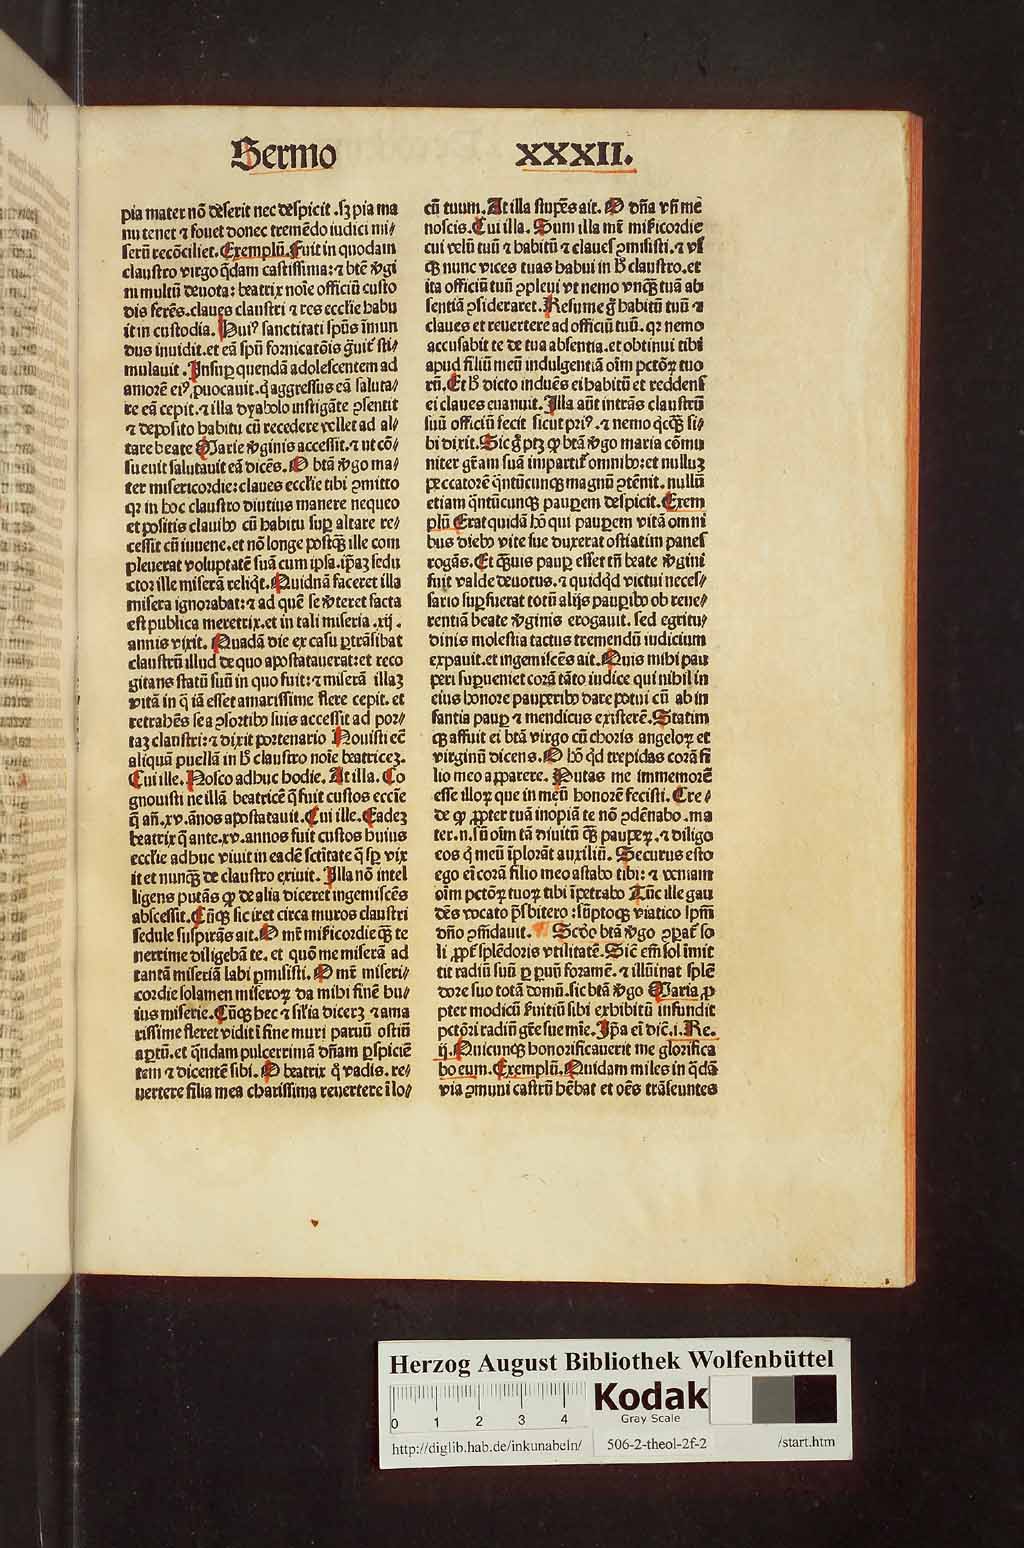 Sermo XXXII.
pia mater nō deserit nec despicit .sꝫ pia ma
nu tenet ⁊ fouet donec tremēdo iudici mi/
serū recōciliet. Exemplū. Fuit in quodam
claustro virgo q̄dam castissima: ⁊ btē ꝟgi
ni multū deuota: beatrix noīe officiū custo
dis ferēs. claues claustri ⁊ res ecclīe habu
it in custodia. Huiꝰ sanctitati spūs īmun
dus inuidit. et eā spū fornicatōis grauit᷑ sti/
mulauit. Insuꝑ quendā adolescentem ad
amorē eiꝰ ꝓuocauit. q̇ aggressus eā saluta/
re eā cepit. ⁊ illa dyabolo instigāte ꝯsentit
⁊ deposito habitu cū recedere vellet ad al/
tare beate Marie ꝟginis accessit. ⁊ ut cō/
sueuit salutauit eā dicēs. O btā ꝟgo ma/
ter misericordie: claues ecclīe tibi ꝯmitto
qꝛ in hoc claustro diutius manere nequeo
et positis clauibꝰ cū habitu suꝑ altare re/
cessit cū iuuene. et nō longe postq̄ꝫ ille com
pleuerat voluptatē suā cum ipsa. ip̄aꝫ sedu
ctor ille miserā reliq̇t. Quidnā faceret illa
misera ignorabat: ⁊ ad quē se ꝟteret facta
est publica meretrix. et in tali miseria .xij.
annis vixit. Quadā die ex casu ꝑtrāsibat
claustrū illud de quo apostatauerat: et reco
gitans statū suū in quo fuit: ⁊ miserā illaꝫ
vitā in q̄ iā esset amarissime flere cepit. et
retrahēs se a ꝯsortibꝰ suis accessit ad por/
taꝫ claustri: ⁊ dixit portenario Nouisti eē
aliquā puellā in hͦ claustro noīe beatriceꝫ.
Cui ille. Nosco adhuc hodie. At illa. Co
gnouisti ne illā beatricē q̄ fuit custos ecc̄ie
q̄ an̄ .xv. ānos apostatauit. Cui ille. Eadeꝫ
beatrix q̄ ante .xv. annos fuit custos huius
ecclīe adhuc viuit in eadē sctītate q̄ sꝑ vix
it et nunq̄ꝫ de claustro exiuit. Illa nō intel
ligens putās ꝙ de alia diceret ingemiscēs
abscessit. Cūqꝫ sic iret circa muros claustri
sedule suspirās ait. O mr̄ mīcordie q̄ꝫ te
nerrime diligebā te. et quō me miserā ad
tantā miseriā labi ꝑmisisti. O mr̄ miseri/
cordie solamen miseroꝝ da mihi finē hu/
ius miserie. Cūqꝫ hec ⁊ sil̄ia dicerꝫ ⁊ ama
rissime fleret vidit ī fine muri paruū ostiū
aꝑtū. et quādam pulcerrimā dn̄am ꝓspiciē
tem ⁊ dicentē sibi. O beatrix q̇ vadis. re/
uertere filia mea charissima reuertere ī lo/
cū tuum. At illa stupēs ait. O dn̄a vn̄ mē
noscis. Cui illa. Sum illa mr̄ mīcordie
cui velū tuū ⁊ habitū ⁊ claues ꝯmisisti. ⁊ vsͣ
q̄ꝫ nunc vices tuas habui in hͦ claustro. et
ita officiū tuū ꝯpleui vt nemo vnq̄ꝫ tuā ab
sentiā ꝯsideraret. Resume g̊ habitū tuū ⁊
claues et reuertere ad officiū tuū. qꝛ nemo
accusabit te de tua absentia. et obtinui tibi
apud filiū meū indulgentiā oīm pctōꝝ tuo
rū. Et hͦ dicto induēs ei habitū et reddens
ei claues euanuit. Illa aūt intrās claustrū
suū officiū fecit sicut priꝰ. ⁊ nemo q̇cq̄ꝫ si/
bi dixit. Sic g̊ ptꝫ ꝙ btā ꝟgo maria cōmu
niter gr̄am suā impartit᷑ omnibꝰ: et nulluꝫ
peccatorē q̄ntūcunqꝫ magnū ꝯtēnit. nullū
etiam q̄ntūcunqꝫ pauꝑem despicit. Exem
plū Erat quidā hō qui pauꝑem vitā omni
bus diebꝰ vite sue duxerat ostiatim panes
rogās. Et q̄ꝫuis pauꝑ esset tn̄ beate ꝟgini
fuit valde deuotus. ⁊ quidq̇d victui neces/
sario suꝑfuerat totū alijs pauꝑibꝰ ob reue/
rentiā beate ꝟginis erogauit. sed egritu/
dinis molestia tactus tremendū iudicium
expauit. et ingemiscēs ait. Quis mihi pau
peri suꝑueniet corā tāto iudice qui nihil in
eius honore pauperibꝰ dare potui cū ab in
fantia pauꝑ ⁊ mendicus existerē. Statim
qꝫ affuit ei btā virgo cū choris angeloꝝ et
virginū dicens. O hō q̇d trepidas corā fi
lio meo apparere. Putas me immemorē
esse illoꝝ que in meū honorē fecisti. Cre/
de ꝙ ꝓpter tuā inopiā te nō ꝯdēnabo. ma
ter .n. sū oīm tā diuitū q̄ꝫ pauperꝝ. ⁊ diligo
eos q̇ meū īplorāt auxiliū. Securus esto
ego ei corā filio meo astabo tibi: ⁊ veniam
oīm pctōꝝ tuoꝝ tibi īpetrabo Tūc ille gau
dēs vocato p̄sbitero: sūptoqꝫ viatico spm̄
dn̄o ꝯmēdauit. Scd̄o btā ꝟgo ꝯparat᷑ so
li ꝓpt᷑ splēdoris vtilitatē. Sic̄ em̄ sol īmit
tit radiū suū ꝑ ꝑuū foramē. ⁊ illūinat splē
dore suo totā domū. sic btā ꝟgo Maria ꝓ
pter modicū ẜuitiū sibi exhibitū infundit
pctōri radiū gr̄e sue mīe. Ip̄a ei dic̄ .i. Re.
ij. Quicunqꝫ honorificauerit me glorifica
bo eum. Exemplū. Quidam miles in q̄dā
via ꝯmuni castrū hēbat et oēs trāseuntes
Herzog August Bibliothek Wolfenbüttel
0 1 2 3 4
Kodak
Gray Scale
http://diglib.hab.de/inkunabeln/ 506-2-theol-2f-2 /start.htm